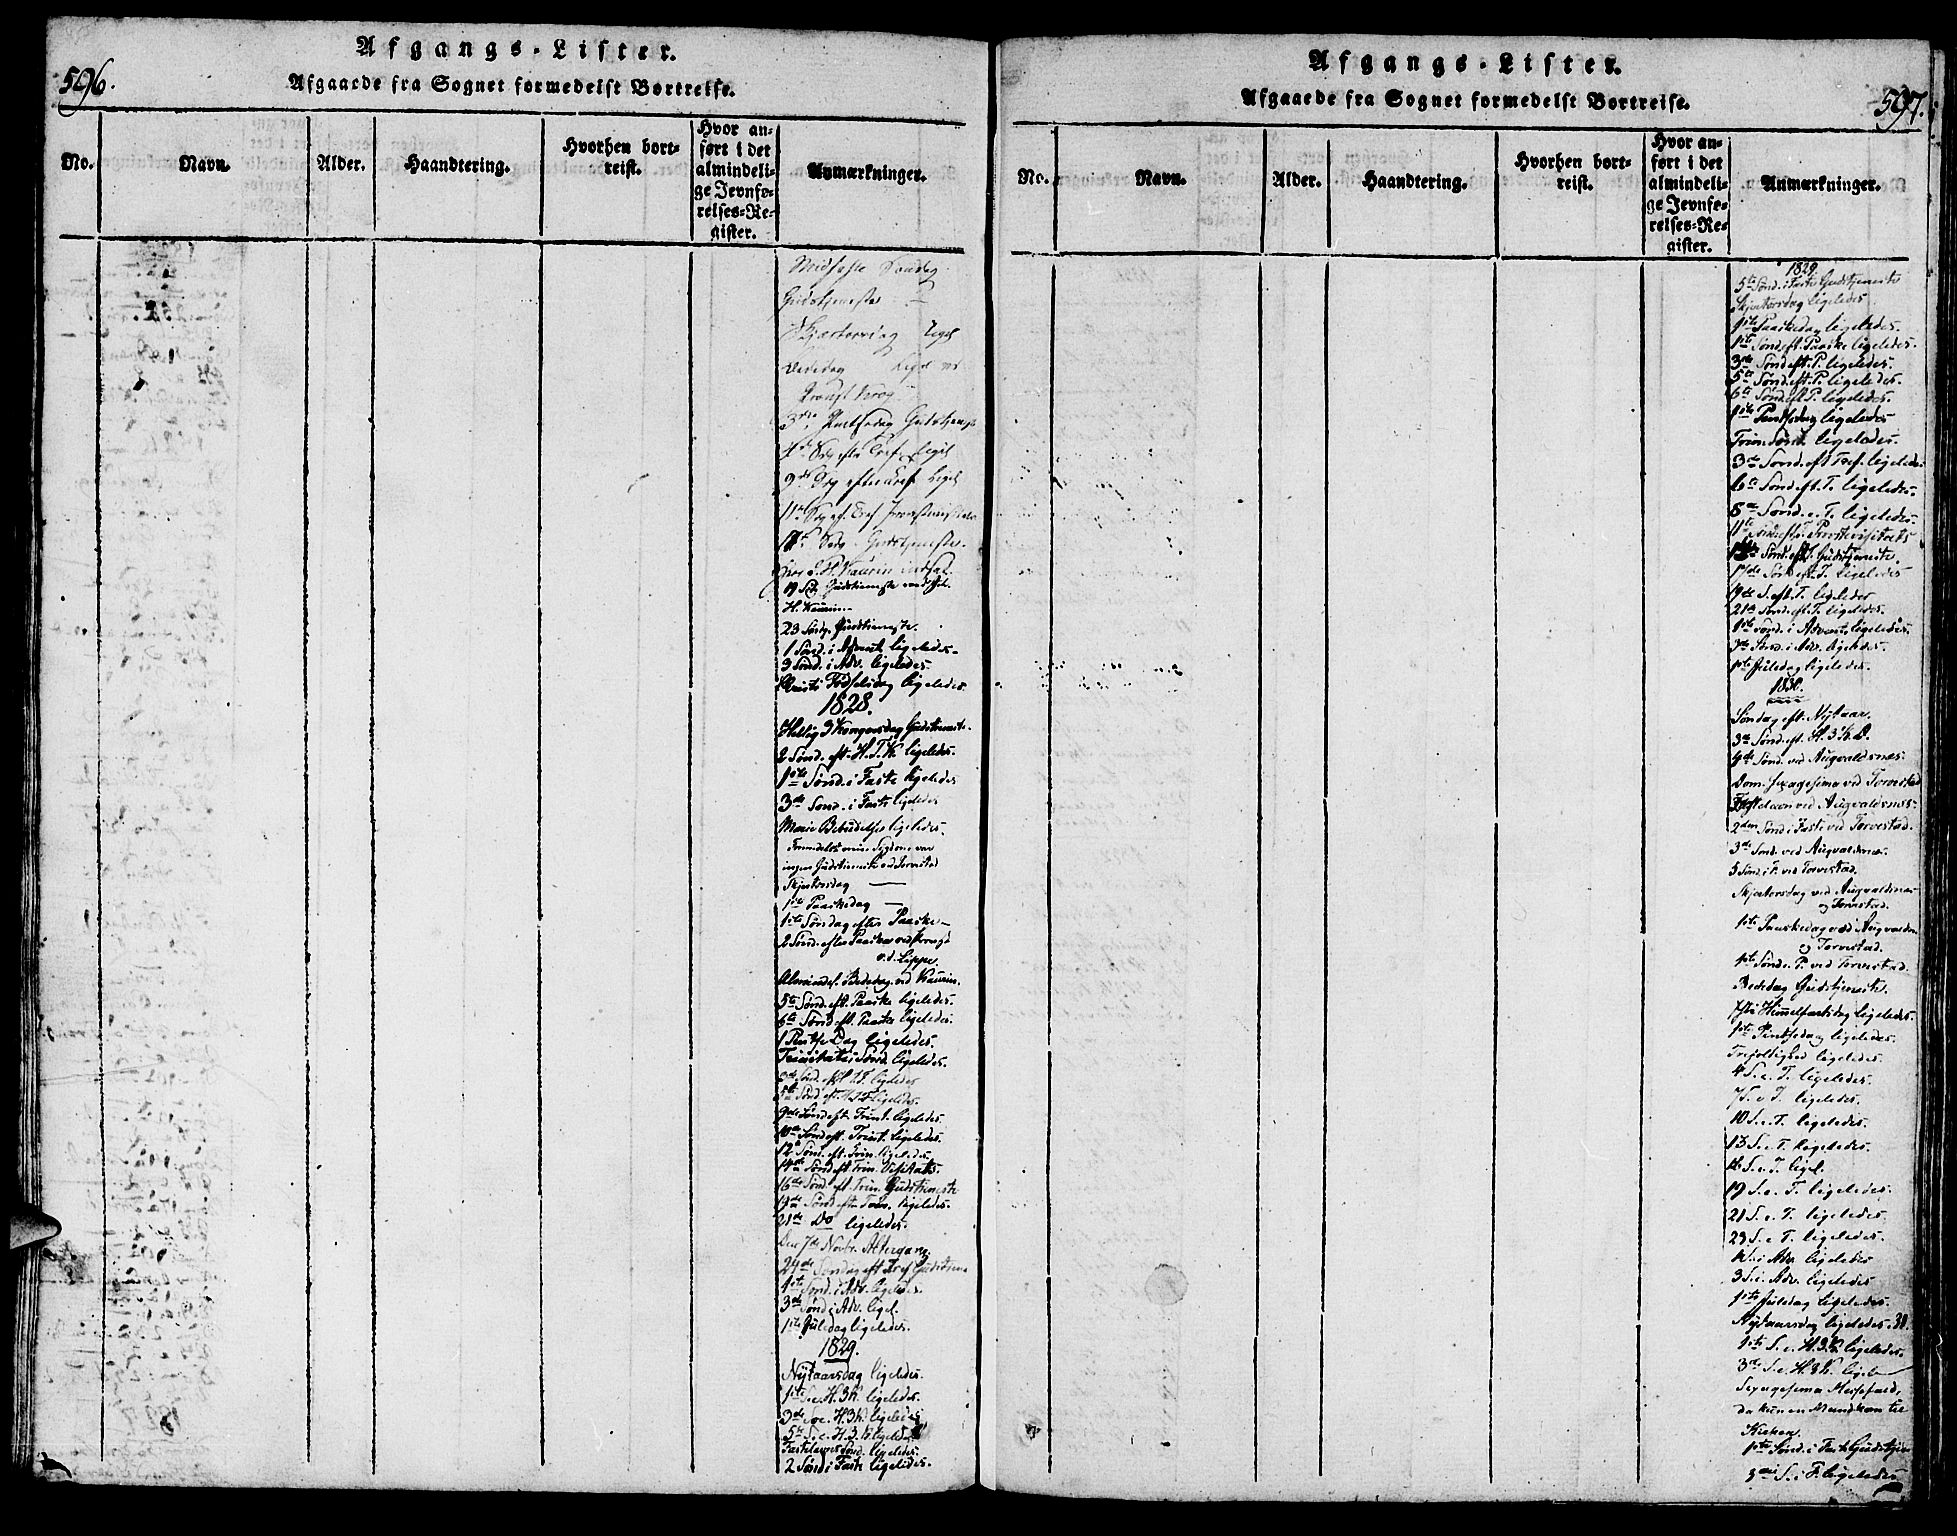 596.
Afgangs-Lister.
Afgaaede fra Sognet formedelst Bortreise.
No.
Navn.
Alder.
Haandtering.
Hvorhen bort-
reist.
Hvor an-
ført i det
almindeli-
ge Jevnfø-
relses-Re-
gister.
Anmærkninger.
Midfaste Søndag
Gudstjeneste
Skjærtorsdag Ligel
Bededag Ligel
Pintsedag Gudstjeneste
9de Søg efter Tref Ligel
Gudstjeneste
H. Kaurin
19 Sø Gudstieneste ved
H. Kaurin
23 Søndg. Gudstieneste.
1 Sønd. i Advent ligeledes.
3 Sønd. i Adv. ligeledes.
Christi Fødselsdag ligeledes.
1828.
Hellig 3 Kongersdag Gudstieneste.
2 Sønd. eft. H. T. K. ligeledes.
1ste Sønd. i Faste ligeledes
3de Sønd. i Faste ligeledes
Marie Bebudelse ligeledes.
Formedelst min Sygdom var
ingen Gudstieneste ved Torvestad
Skjertorsdag —
1ste Paaskedag —
1ste Søndag efter Paaske —
2 Sønd. efter Paaske ved Provst
v. d. Lippe.
Almindel. Bededag ved Kaurin.
5te Sønd. eft. Paaske ligeledes.
6te Sønd. eft. Paaske ligeledes.
1 Pintse Dag ligeledes.
Trinitatis Sønd. ligeledes.
3de Sønd. eft. T. ligeledes
5te Sønd. eft. ligeledes.
9de Sønd. eft. Trinit. ligeledes.
10de Sønd. eft. Trinit. ligeledes.
12 Sønd. eft. Trin. ligeledes.
14de Sønd. eft. Trin. Visitats.
16de Sønd. eft. Trin. Gudstieneste
19de Sønd. eft. Trin. ligeledes.
21de Do ligeledes.
Den 7de Novbr. Altergang
24de Søndag eft. Tref. Gudstjene
1ste Sønd. i Adv. ligeledes.
3de Sønd. i Adv. ligel.
1ste Juledag ligeledes.
1829.
Nytaarsdag ligeledes.
1ste S. e. H. 3 K. ligeledes.
3de S. e. H. 3 K. ligeledes
5te S. e. H. 3 K. ligeledes
Fastelavns Sønd. ligeledes.
2 Sønd. i Faste ligeledes.
597.
Afgangs-Lister.
Afgaaede fra Sognet formedelst Bortreise.
No.
Navn.
Alder.
Haandtering.
Hvorhen bort-
reist.
Hvor an-
ført i det
almindeli-
ge Jevnfø-
relses-Re-
gister.
Anmærkninger.
1829.
5te Sønd. i Faste Gudstjeneste
Skjertorsdag ligeledes.
1ste Paaskedag ligeledes.
1ste Sønd. eft. Paaske ligeledes.
3de Sønd. eft. P. ligeledes.
5te Sønd. eft. P. ligeledes.
6te Sønd. eft. P. ligeledes.
1ste Pintsedag ligeledes
Trin. Sønd. ligeledes.
3de Sønd. eft. Tref. ligeledes
6te Sønd. eft. T. ligeledes.
8de Sønd. e. T. ligeledes.
11te Sønd. eft. T. Provstevisitats
Sønd. eft. T. Gudstjeneste
17de Sønd. eft. T. ligeledes
19de S. eft. T. ligeledes
21de Sønd. eft. T. ligeledes.
1ste Sønd. i Advent ligeledes.
3de Sønd. i Adv. ligeledes.
1ste Juledag ligeledes.
1830.
Søndag eft. Nytaar.
3de Sønd. eft. H. 3 K. D.
4de Sønd. ved Augvaldsnæs.
Dom. sexagesima ved Torvestad
Fastelavn ved Augvaldsnæs.
2den Sønd. i Faste ved Torvestad.
3de Sønd. ved Augvaldsnæs.
5 Sønd. i F. ved Torvestad.
Skjertorsdag ved Augvaldsnæs
og Torvestad.
1ste Paaskedag ved Augvaldsn
og Torvestad.
1ste Sønd. e. P. ved Torvestad.
Bededag Gudstjeneste.
Christi Himmelfartsdag ligeledes.
1ste Pintsedag ligeledes.
Trefoltighed ligeledes.
4 S. e. T. ligeledes.
7 S. e. T. ligeledes.
10 S. e. T. ligeledes.
13 S. e. T. ligeledes.
16 S. e. T. ligel.
19 S. e. T. ligeledes.
21 S. e. T. ligeledes.
23 S. e. T. ligeledes.
1 S. i Adv. ligeledes
3 S. i Adv. ligeledes.
1ste Juledag ligeledes.
Nytaarsdag ligeledes. 31.
1ste S. e. H. 3 K. ligeledes.
3de S. e. H. 3 K. ligele
Sexagesima Messefald,
da kun en Mand kom til
Kirken.
1ste Sønd. i Fast. Gudstjen
3die S. i F. ligeledes